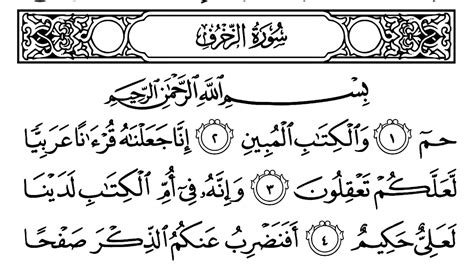 سُورَةُ الزُّخْرُفِ
بِسْمِ ٱللَّهِ ٱلرَّحْمَٰنِ ٱلرَّحِيمِ
حمٓ ١ وَٱلْكِتَٰبِ ٱلْمُبِينِ ٢ إِنَّا جَعَلْنَٰهُ قُرْءَٰنًا عَرَبِيًّا
لَّعَلَّكُمْ تَعْقِلُونَ ٣ وَإِنَّهُۥ فِىٓ أُمِّ ٱلْكِتَٰبِ لَدَيْنَا
لَعَلِىٌّ حَكِيمٌ ٤ أَفَنَضْرِبُ عَنكُمُ ٱلذِّكْرَ صَفْحًا